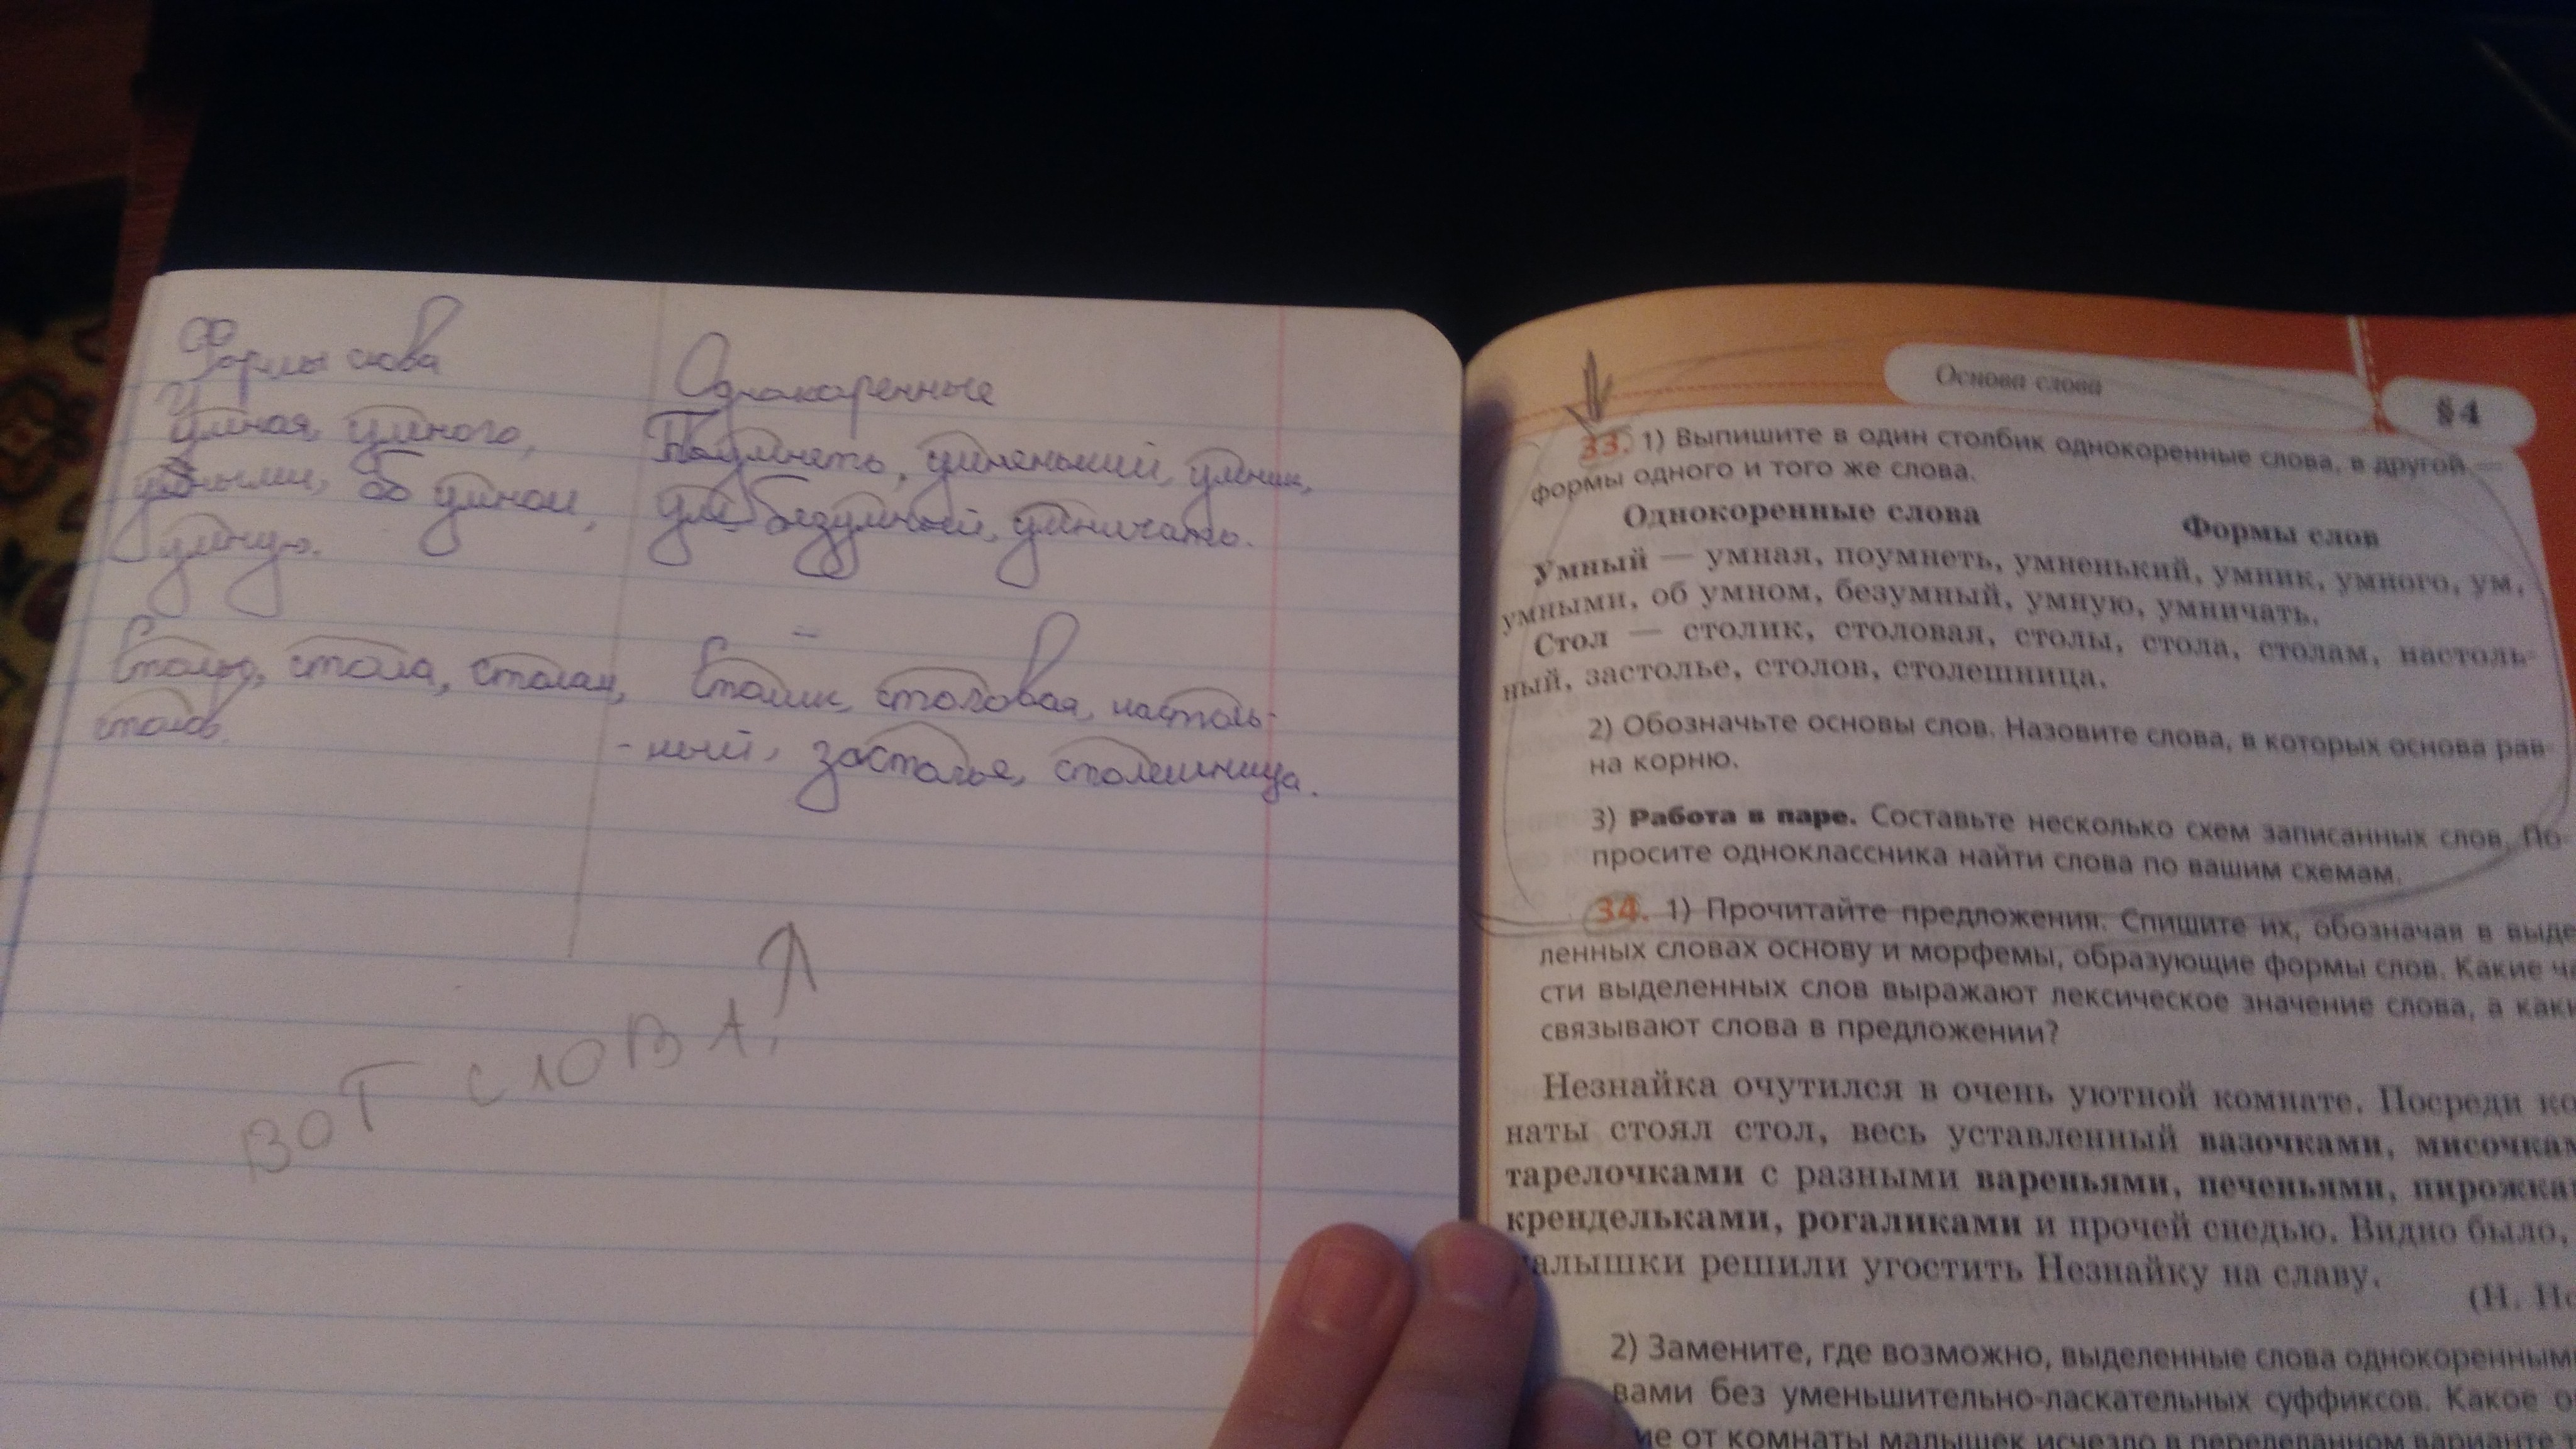 Формы слова
Однокаренные
Умная, умного,
умными, об умном,
умную.
Поумнеть, умненький, умник,
ум, безумный, умничать.
Столы, стола, столам,
столов.
Столик, столовая, настоль-
-ный, застолье, столешница.
ВОТ СЛОВА,
Основа слова
§4
33. 1) Выпишите в один столбик однокоренные слова, в другой
формы одного и того же слова.
Однокоренные слова Формы слов
Умный — умная, поумнеть, умненький, умник, умного, ум,
умными, об умном, безумный, умную, умничать.
Стол — столик, столовая, столы, стола, столам, настоль-
ный, застолье, столов, столешница.
2) Обозначьте основы слов. Назовите слова, в которых основа рав-
на корню.
3) Работа в паре. Составьте несколько схем записанных слов. По-
просите одноклассника найти слова по вашим схемам.
34. 1) Прочитайте предложения. Спишите их, обозначая в выде
ленных словах основу и морфемы, образующие формы слов. Какие ча
сти выделенных слов выражают лексическое значение слова, а каки
связывают слова в предложении?
Незнайка очутился в очень уютной комнате. Посреди ко
наты стоял стол, весь уставленный вазочками, мисочкам
тарелочками с разными вареньями, печеньями, пирожкам
крендельками, рогаликами и прочей снедью. Видно было,
алышки решили угостить Незнайку на славу.
(Н. Но
2) Замените, где возможно, выделенные слова однокоренными
вами без уменьшительно-ласкательных суффиксов. Какое о
ие от комнаты малышек исчезло в переделанном варианте